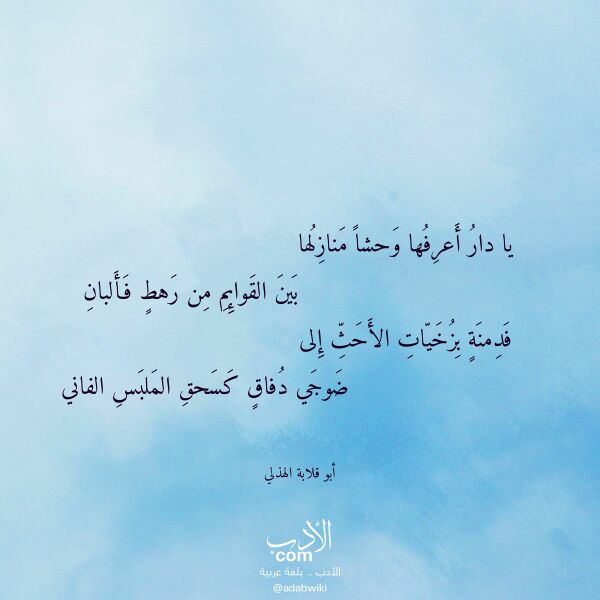 يا دارُ أَعرِفُها وَحشاً مَنازِلُها
بَينَ القَوايِمِ مِن رَهطٍ فَأَلبانِ
فَدِمنَةٍ بِرُخَيّاتِ الأَحَثِّ إِلى
ضَوجَي دُفاقٍ كَسَحقِ المَلبَسِ الفاني
أبو قلابة الهذلي
الأدب
com
الأدب .. بلغة عربية
@adabwiki